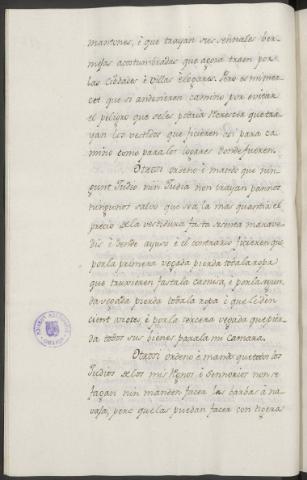 mantones, è que trayan sus señnales ber-
mejas acostumbradas que agora traen por
las Ciudades è Villas è logares. Pero es mi mer-
cet que si anduvieren camino por evitar
el peligro que se les podria recrescer que tra-
yan los vestidos que ficieren asi para ca-
mino como para los logares donde fueren.
Otrosi ordeno è mando que nin-
gunt Judio nin Judia non trayan pannos
ningunos salvo que sea la mas quantia el
precio de la vestidura fasta sesenta marave-
dis è dende ayuso è el contrario ficieren que
por la primera vegada pierda tota la ropa
que truvieren fasta la camisa, è por la segun-
da vegada pierda toda la ropa è que le den
cient azotes, è por la tercera vegada que pier-
da todos sus bienes para la mi camara.
Otrosi ordeno è mando que todos los
Judios de los mis Regnos è Sennorios non se
fagan nin manden facer las barbas à na-
vaja, pero que las puedan facer con tigeras